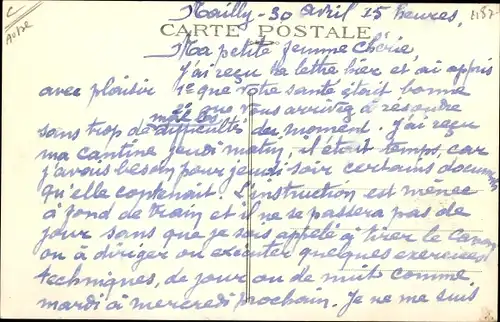 Mailly - 30 avril 15 heures.
CARTE POSTALE
Ma petite femme Chérie
J'ai reçu ta lettre hier et j'ai appris
avec plaisir 1° que votre santé était bonne
2° que vous arriviez à résoudre
sans trop de mal les difficultés du moment. J'ai reçu
ma cantine jeudi matin, il était temps, car
j'avais besoin pour jeudi soir certains documents
qu'elle contenait. L'instruction est menée
à fond de train et il ne se passera pas de
jour sans que je sois appelé à tirer le canon
ou à diriger ou exécuter quelques exercices
techniques, de jour ou de nuit comme
mardi à mercredi prochain. Je ne me suis